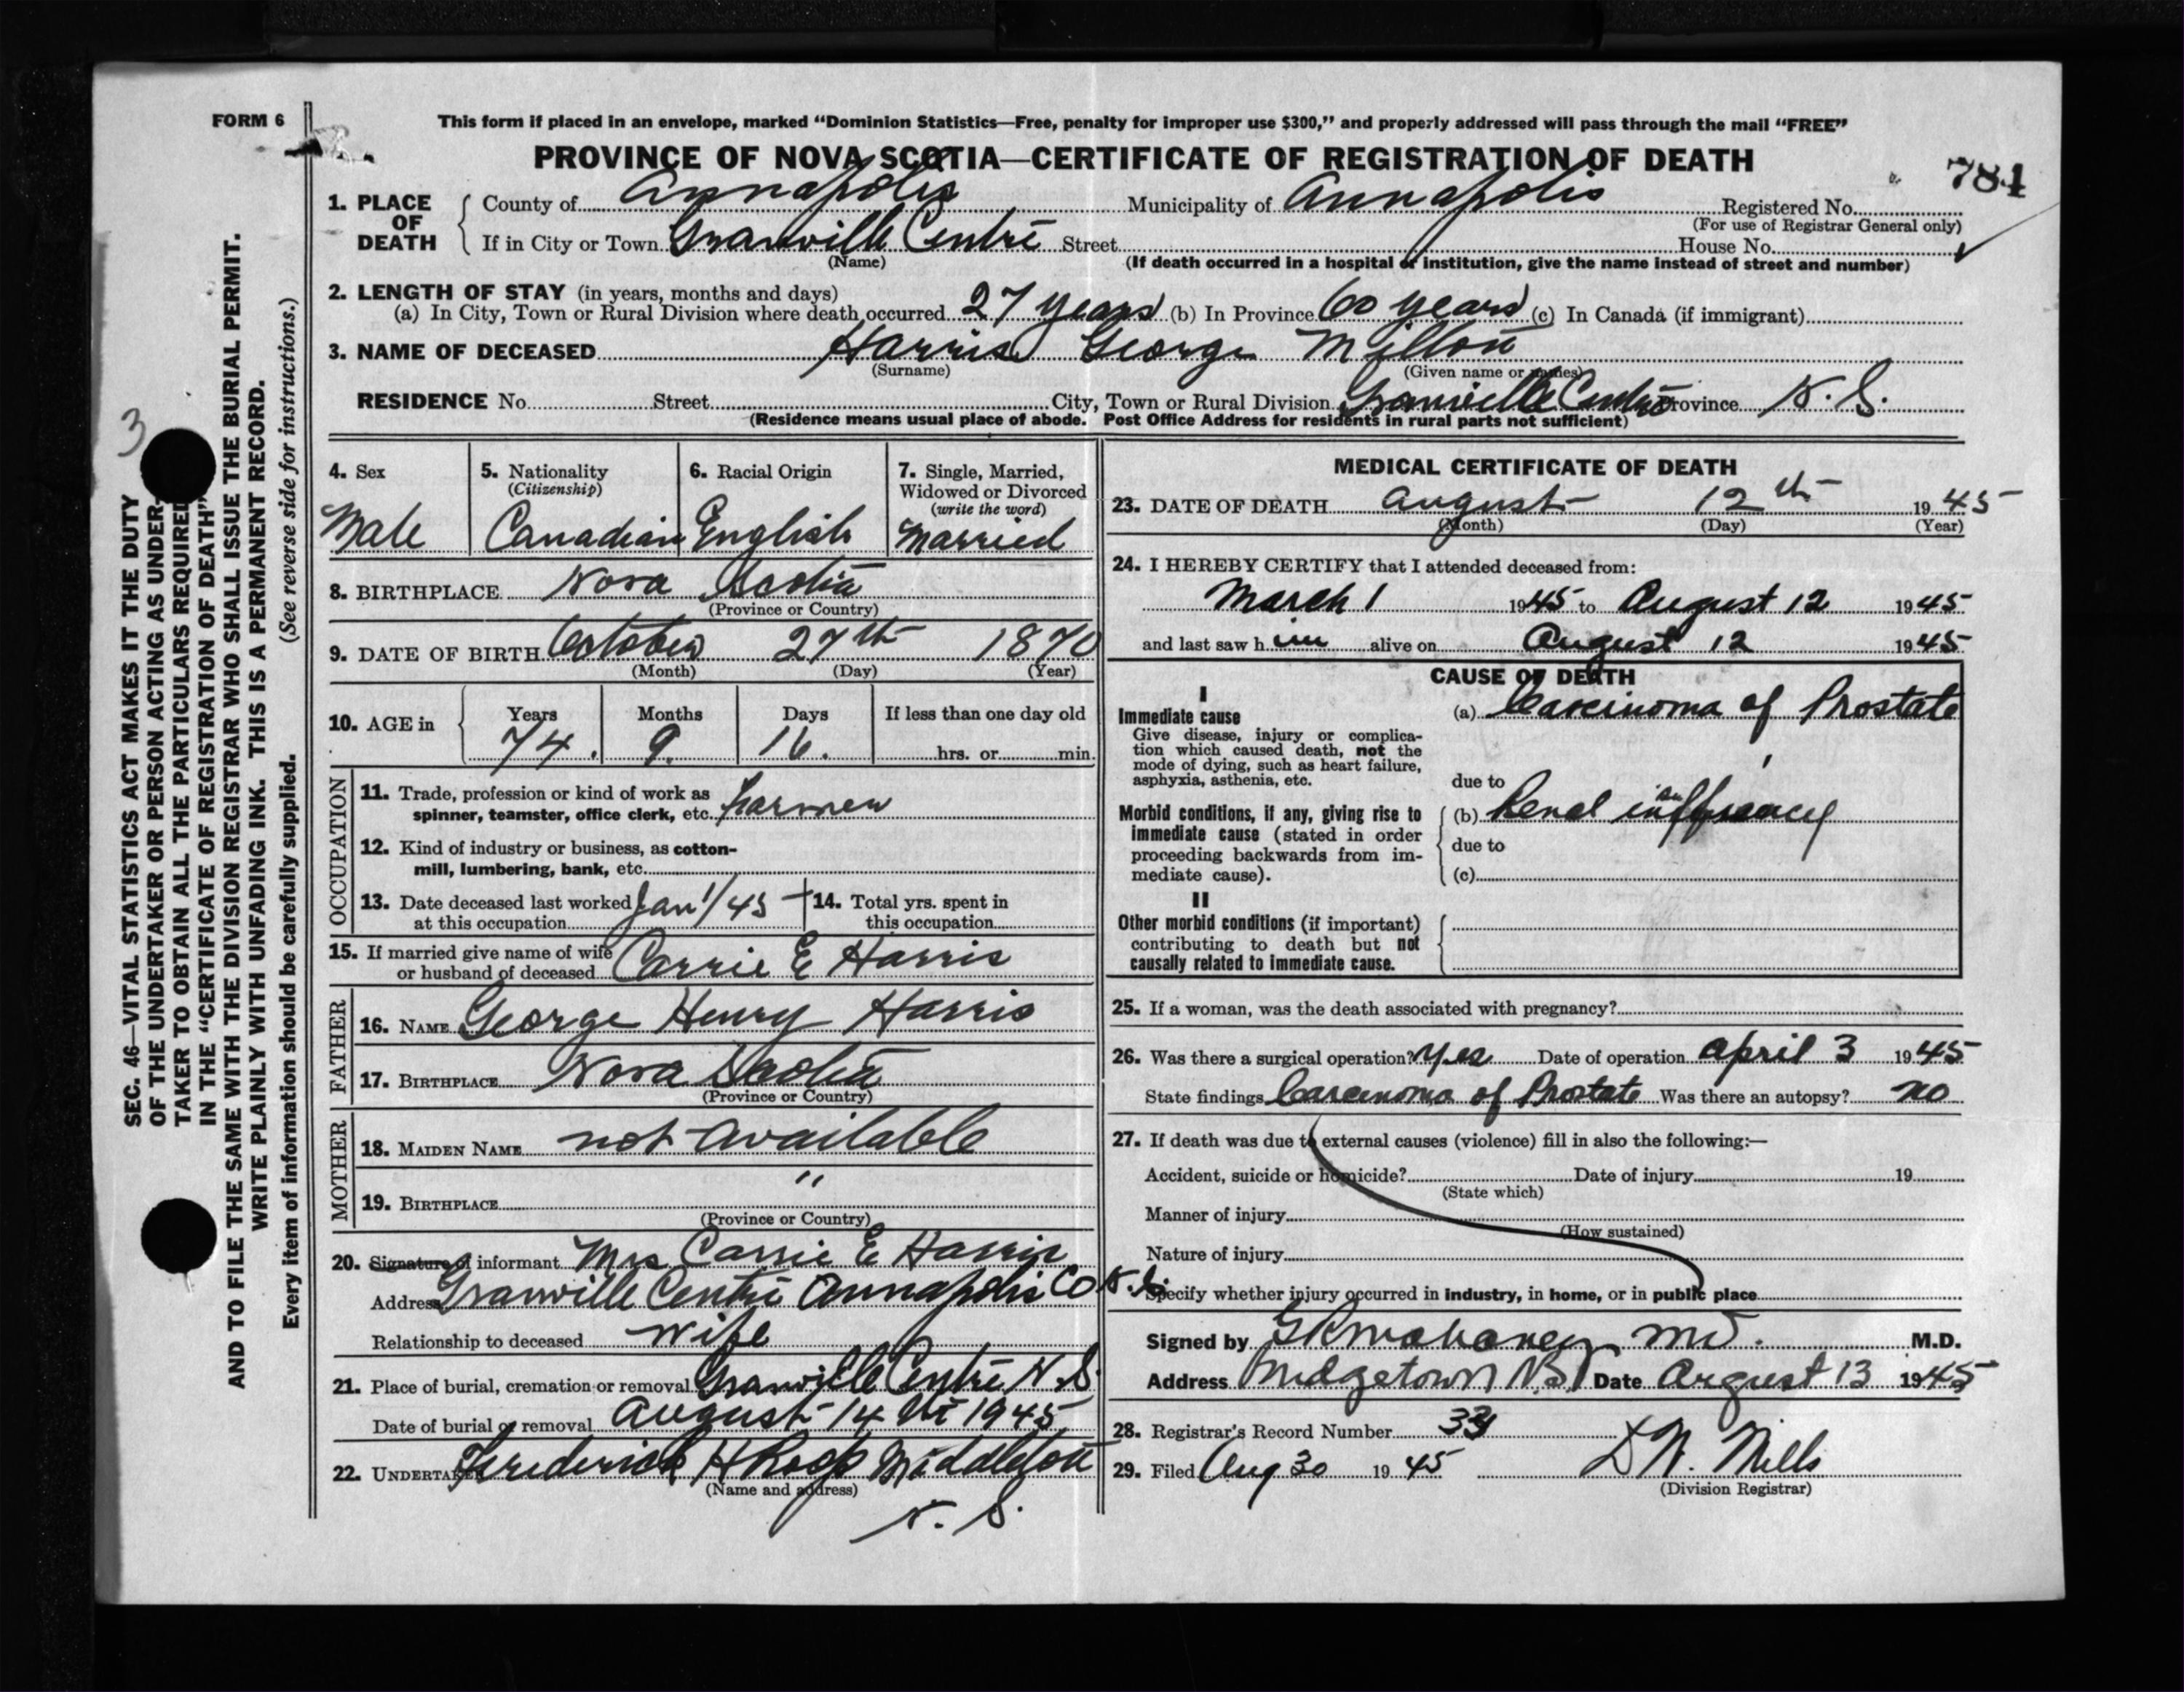 FORM 6
This form if placed in an envelope, marked “Dominion Statistics—Free, penalty for improper use $300,” and properly addressed will pass through the mail “FREE”
PROVINCE OF NOVA SCOTIA—CERTIFICATE OF REGISTRATION OF DEATH
784
1. PLACE OF DEATH
County of Annapolis Municipality of Annapolis Registered No.
(For use of Registrar General only)
If in City or Town Granville Centre Street House No.
(Name) (If death occurred in a hospital or institution, give the name instead of street and number)
2. LENGTH OF STAY (in years, months and days)
(a) In City, Town or Rural Division where death occurred 27 years (b) In Province 60 years (c) In Canada (if immigrant)
3. NAME OF DECEASED Harris George Milton
(Surname) (Given name or names)
RESIDENCE No. Street City, Town or Rural Division Granville Centre Province N.S.
(Residence means usual place of abode. Post Office Address for residents in rural parts not sufficient)
4. Sex
Male
5. Nationality
(Citizenship)
Canadian
6. Racial Origin
English
7. Single, Married,
Widowed or Divorced
(write the word)
Married
8. BIRTHPLACE Nova Scotia
(Province or Country)
9. DATE OF BIRTH October 27th 1870
(Month) (Day) (Year)
10. AGE in Years Months Days If less than one day old
74. 9. 16. hrs. or min.
OCCUPATION
11. Trade, profession or kind of work as
spinner, teamster, office clerk, etc. farmer
12. Kind of industry or business, as cotton-
mill, lumbering, bank, etc.
13. Date deceased last worked
at this occupation Jan 1/45
14. Total yrs. spent in
this occupation
15. If married give name of wife
or husband of deceased Carrie E Harris
FATHER
16. NAME George Henry Harris
17. BIRTHPLACE Nova Scotia
(Province or Country)
MOTHER
18. MAIDEN NAME not available
19. BIRTHPLACE "
(Province or Country)
20. Signature of informant Mrs Carrie E Harris
Address Granville Centre Annapolis Co N.S.
Relationship to deceased Wife
21. Place of burial, cremation or removal Granville Centre N.S.
Date of burial or removal August 14th 1945
22. UNDERTAKER Frederick H Roop Middleton
(Name and address)
N. S.
MEDICAL CERTIFICATE OF DEATH
23. DATE OF DEATH August 12th 1945
(Month) (Day) (Year)
24. I HEREBY CERTIFY that I attended deceased from:
March 1 1945 to August 12 1945
and last saw him alive on August 12 1945
CAUSE OF DEATH
I
Immediate cause
Give disease, injury or complica-
tion which caused death, not the
mode of dying, such as heart failure,
asphyxia, asthenia, etc.
(a) Carcinoma of Prostate
due to
Morbid conditions, if any, giving rise to
immediate cause (stated in order
proceeding backwards from im-
mediate cause).
(b) Renal
due to
(c)
II
Other morbid conditions (if important)
contributing to death but not
causally related to immediate cause.
25. If a woman, was the death associated with pregnancy?
26. Was there a surgical operation? Yes Date of operation April 3 1945
State findings Carcinoma of Prostate Was there an autopsy? no
27. If death was due to external causes (violence) fill in also the following:—
Accident, suicide or homicide? Date of injury 19
(State which)
Manner of injury
(How sustained)
Nature of injury
Specify whether injury occurred in industry, in home, or in public place
Signed by M.D.
Address Bridgetown NS Date August 13 1945
28. Registrar's Record Number
29. Filed Aug 30 1945 Mills
(Division Registrar)
3
SEC. 46—VITAL STATISTICS ACT MAKES IT THE DUTY
OF THE UNDERTAKER OR PERSON ACTING AS UNDER-
TAKER TO OBTAIN ALL THE PARTICULARS REQUIRED
IN THE “CERTIFICATE OF REGISTRATION OF DEATH”
AND TO FILE THE SAME WITH THE DIVISION REGISTRAR WHO SHALL ISSUE THE BURIAL PERMIT.
WRITE PLAINLY WITH UNFADING INK. THIS IS A PERMANENT RECORD.
Every item of information should be carefully supplied. (See reverse side for instructions.)